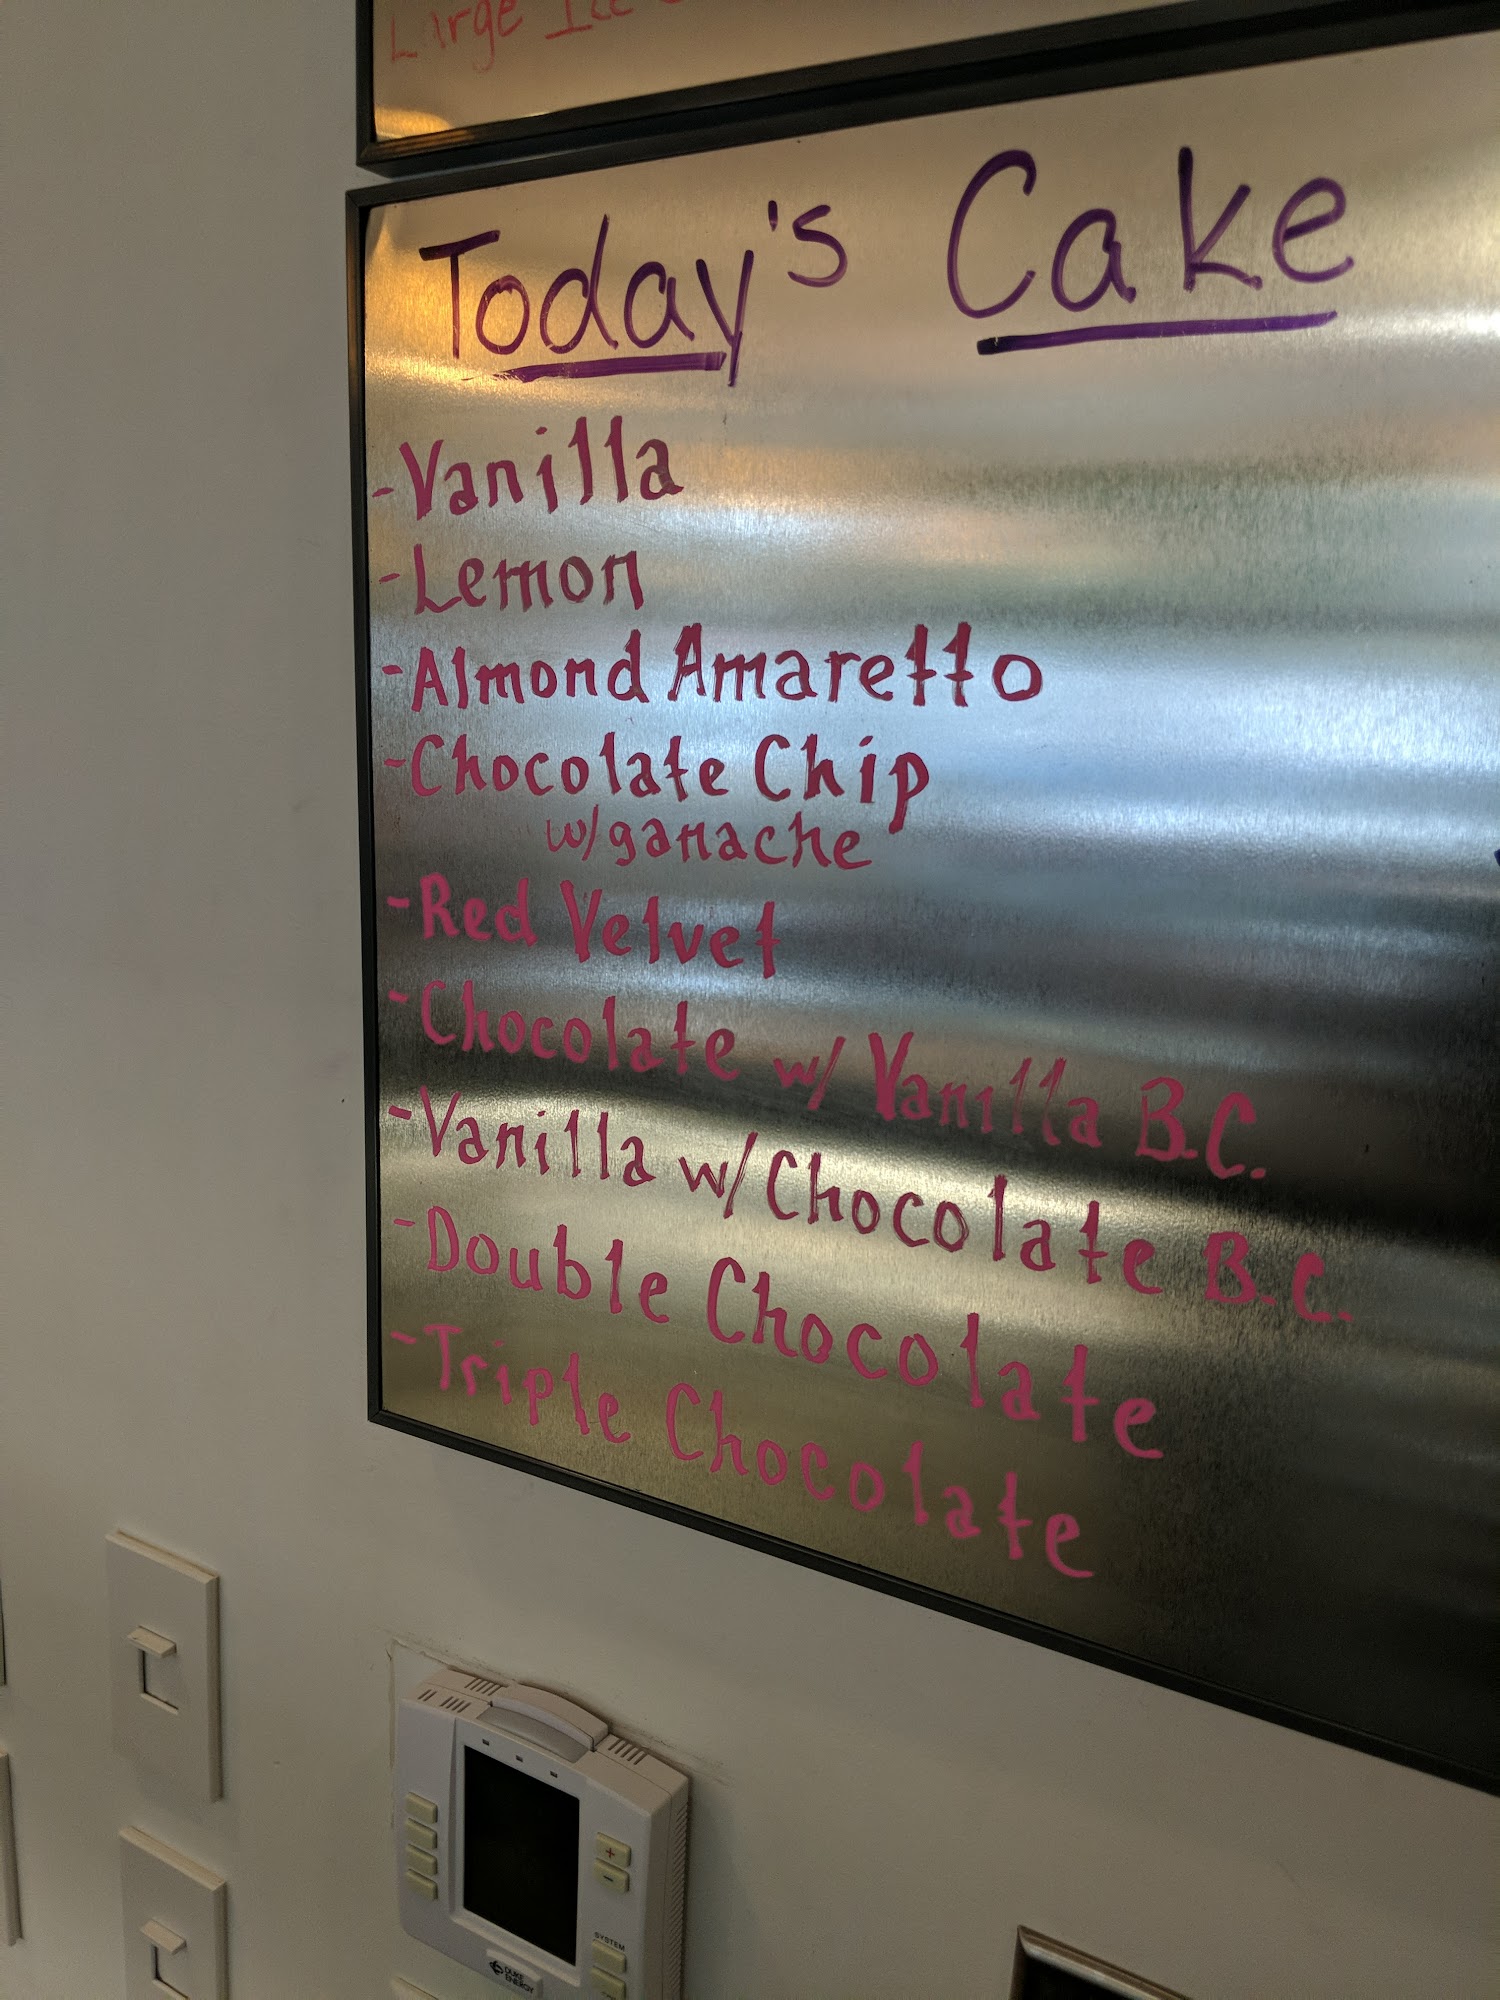 Large Ice
Today's Cake
-Vanilla
-Lemon
-Almond Amaretto
-Chocolate Chip
w/ganache
-Red Velvet
-Chocolate w/ Vanilla B.C.
-Vanilla w/Chocolate B.C.
-Double Chocolate
-Triple Chocolate
+
-
SYSTEM
DUKE
ENERGY